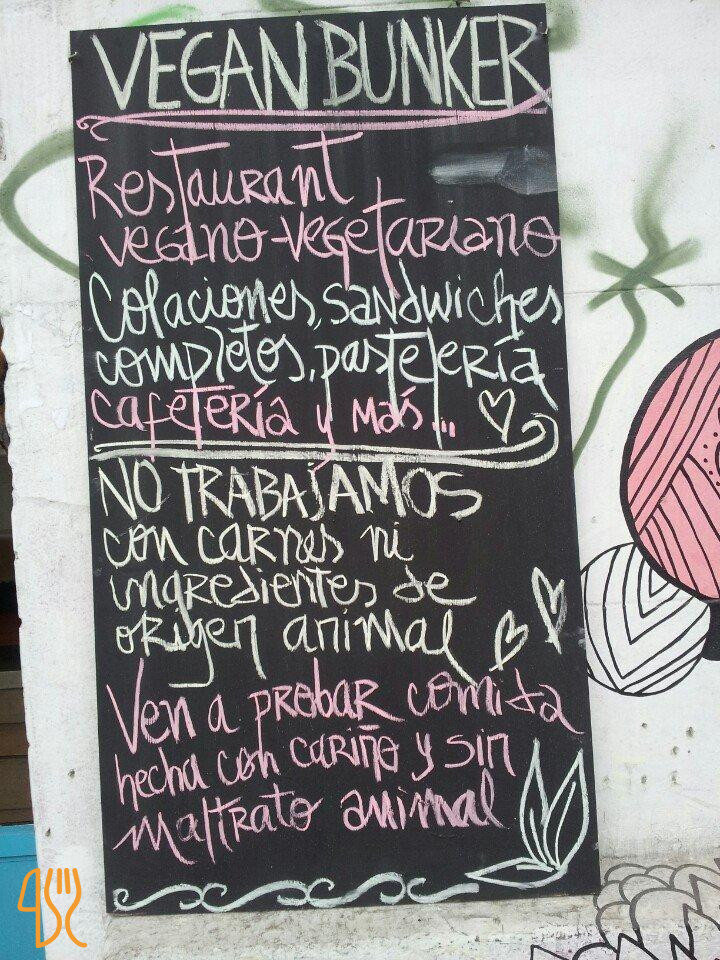 VEGAN BUNKER
Restaurant
vegano-vegetariano
Colaciones, sandwiches
completos, pastelería
cafetería y más...
NO TRABAJAMOS
con carnes ni
ingredientes de
origen animal
Ven a probar comida
hecha con cariño y sin
maltrato animal